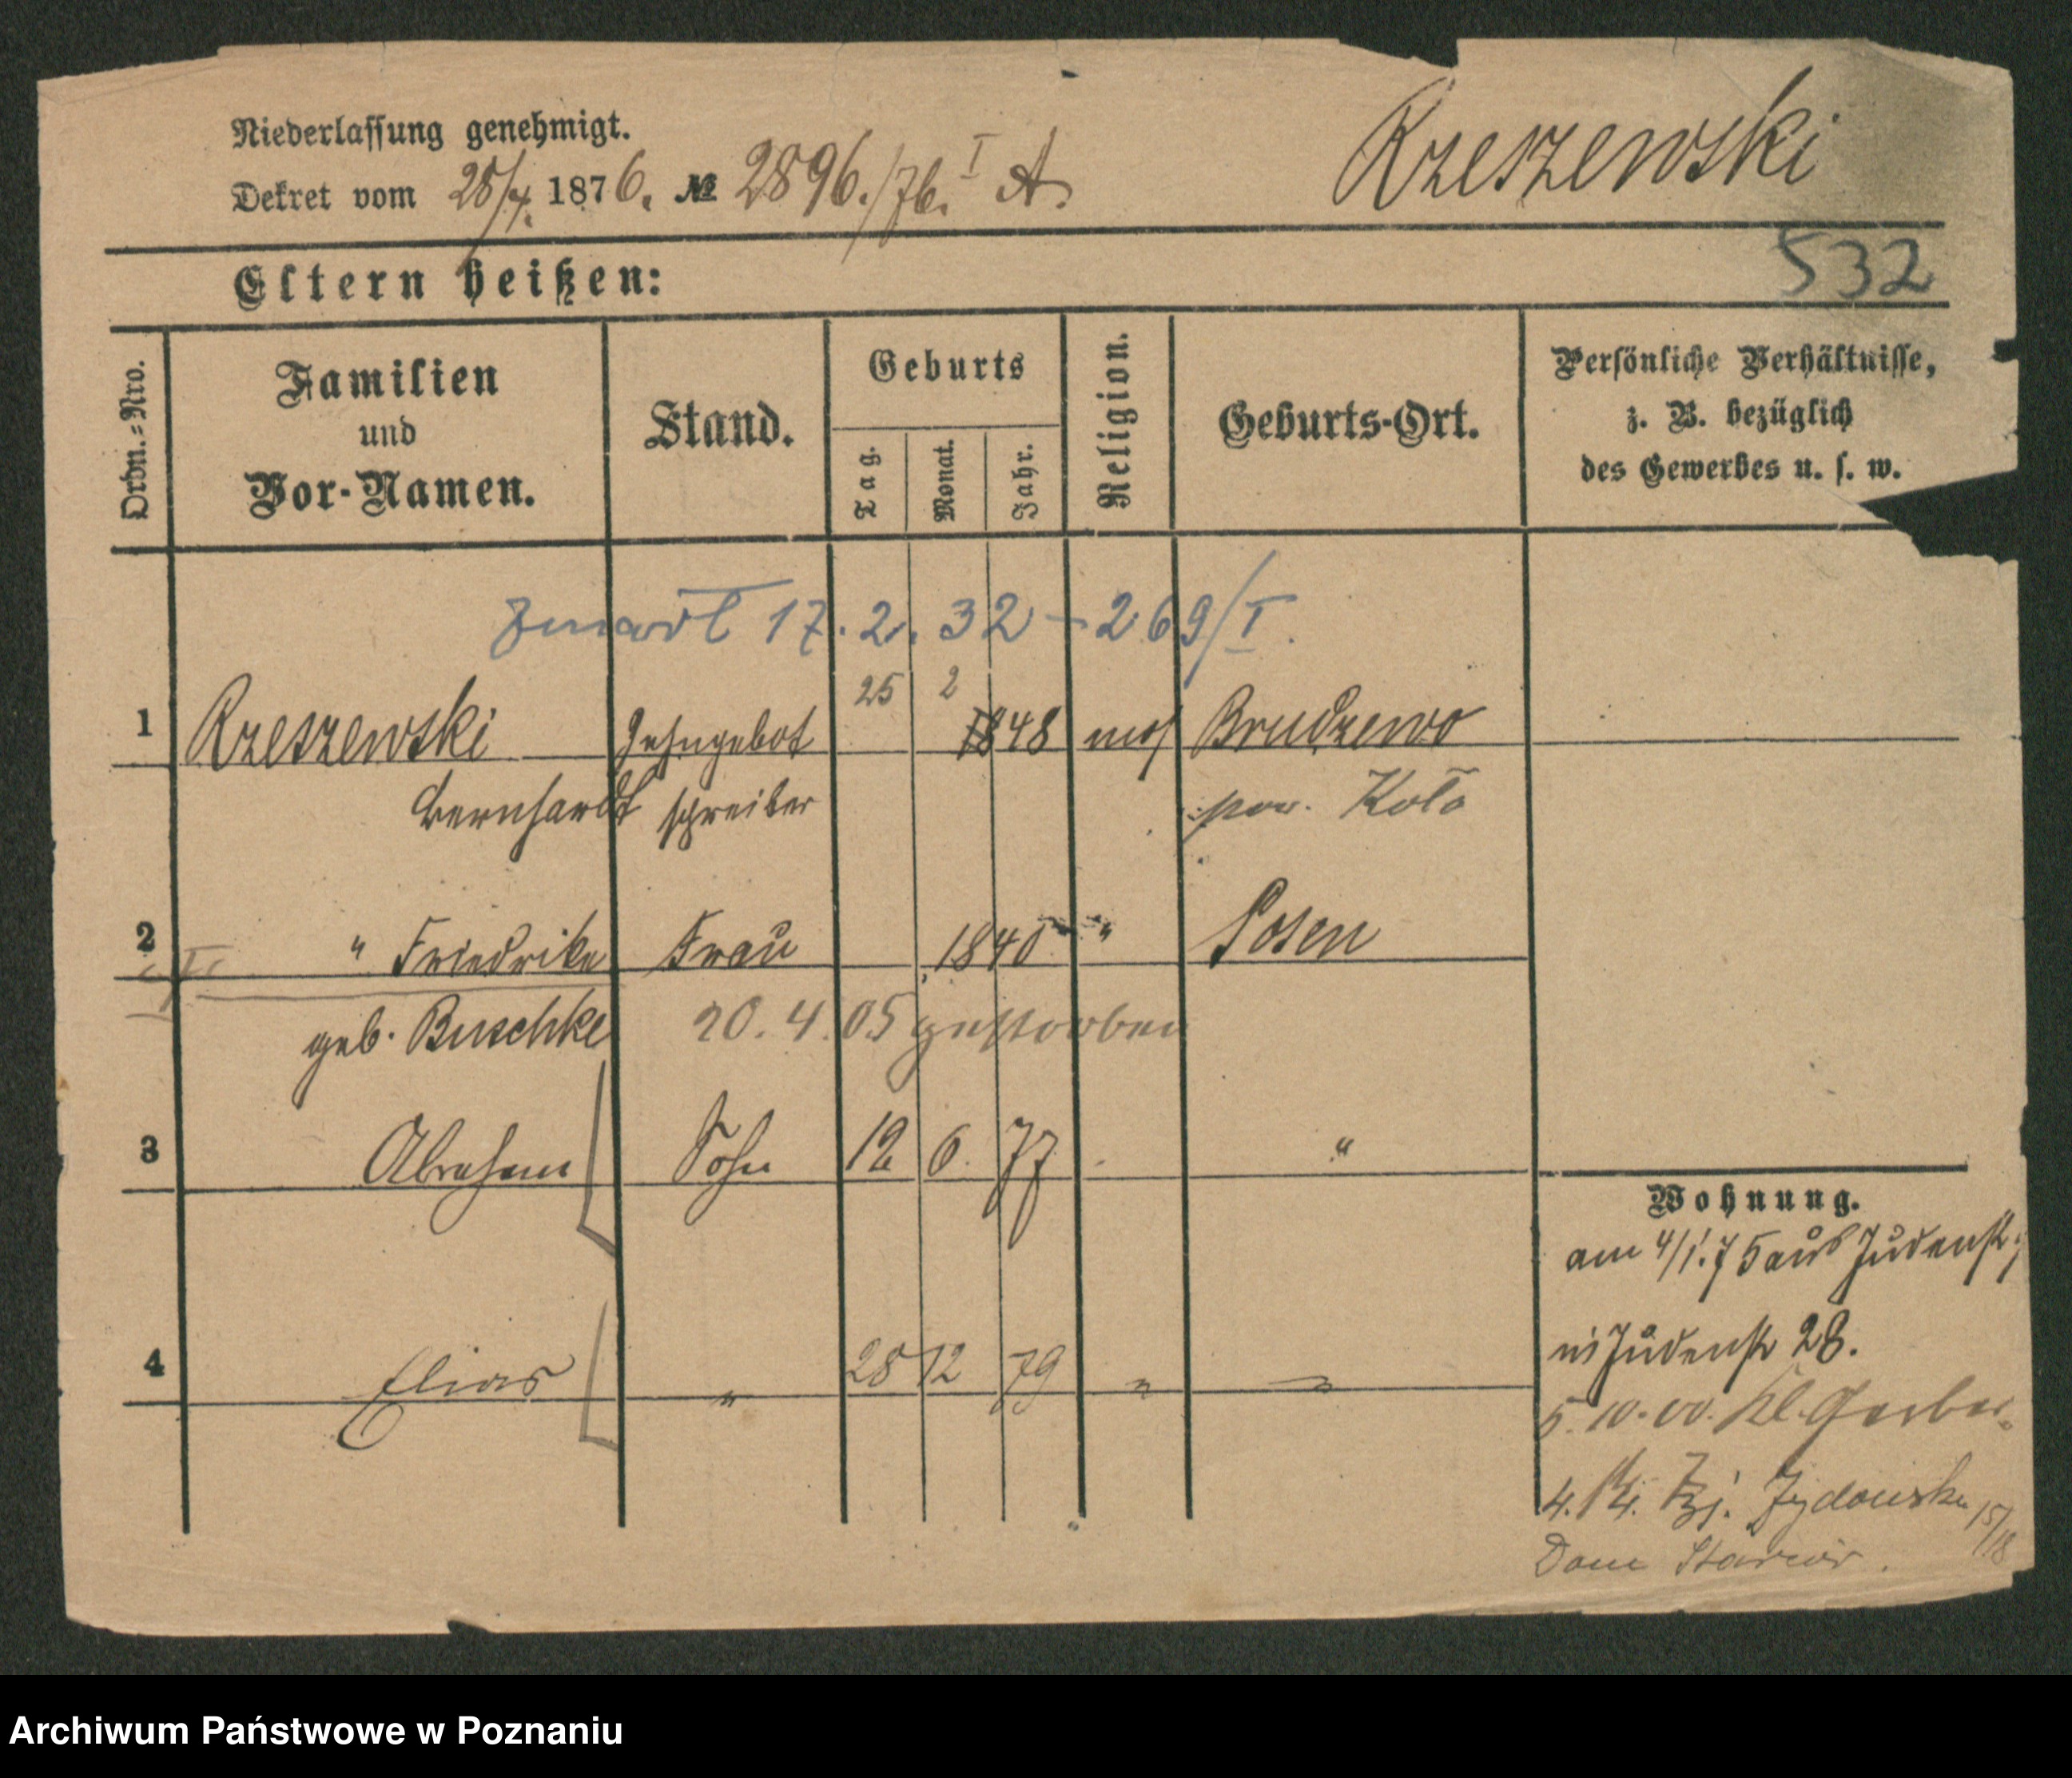 Niederlassung genehmigt.
Rzeszewski
Dekret vom 28/4. 1876. № 2896./76. I A.
532
Eltern heißen:
Ordn.=Nro.
Familien
und
Vor-Namen.
Stand.
Geburts
Tag.
Monat.
Jahr.
Religion.
Geburts-Ort.
Persönliche Verhältnisse,
z. B. bezüglich
des Gewerbes u. s. w.
zmarł 17. 2. 32 – 269/I.
25 2
1 Rzeszewski 1848 mos Brudzewo
Bernhardt schreiber pow. Koło
2 " Friedrike Frau 1840 " Posen
geb. Buschke 20. 4. 05 gestorben
3 Abraham Sohn 12 6. 77 "
4 Elias " 28 12 79 " "
Wohnung.
am 4/1. 75 aus Judenstr.
in Judenstr 28.
5. 10. 00. Kl. Gerber-
Żydowska 15/18
Dom Starców.
Archiwum Państwowe w Poznaniu